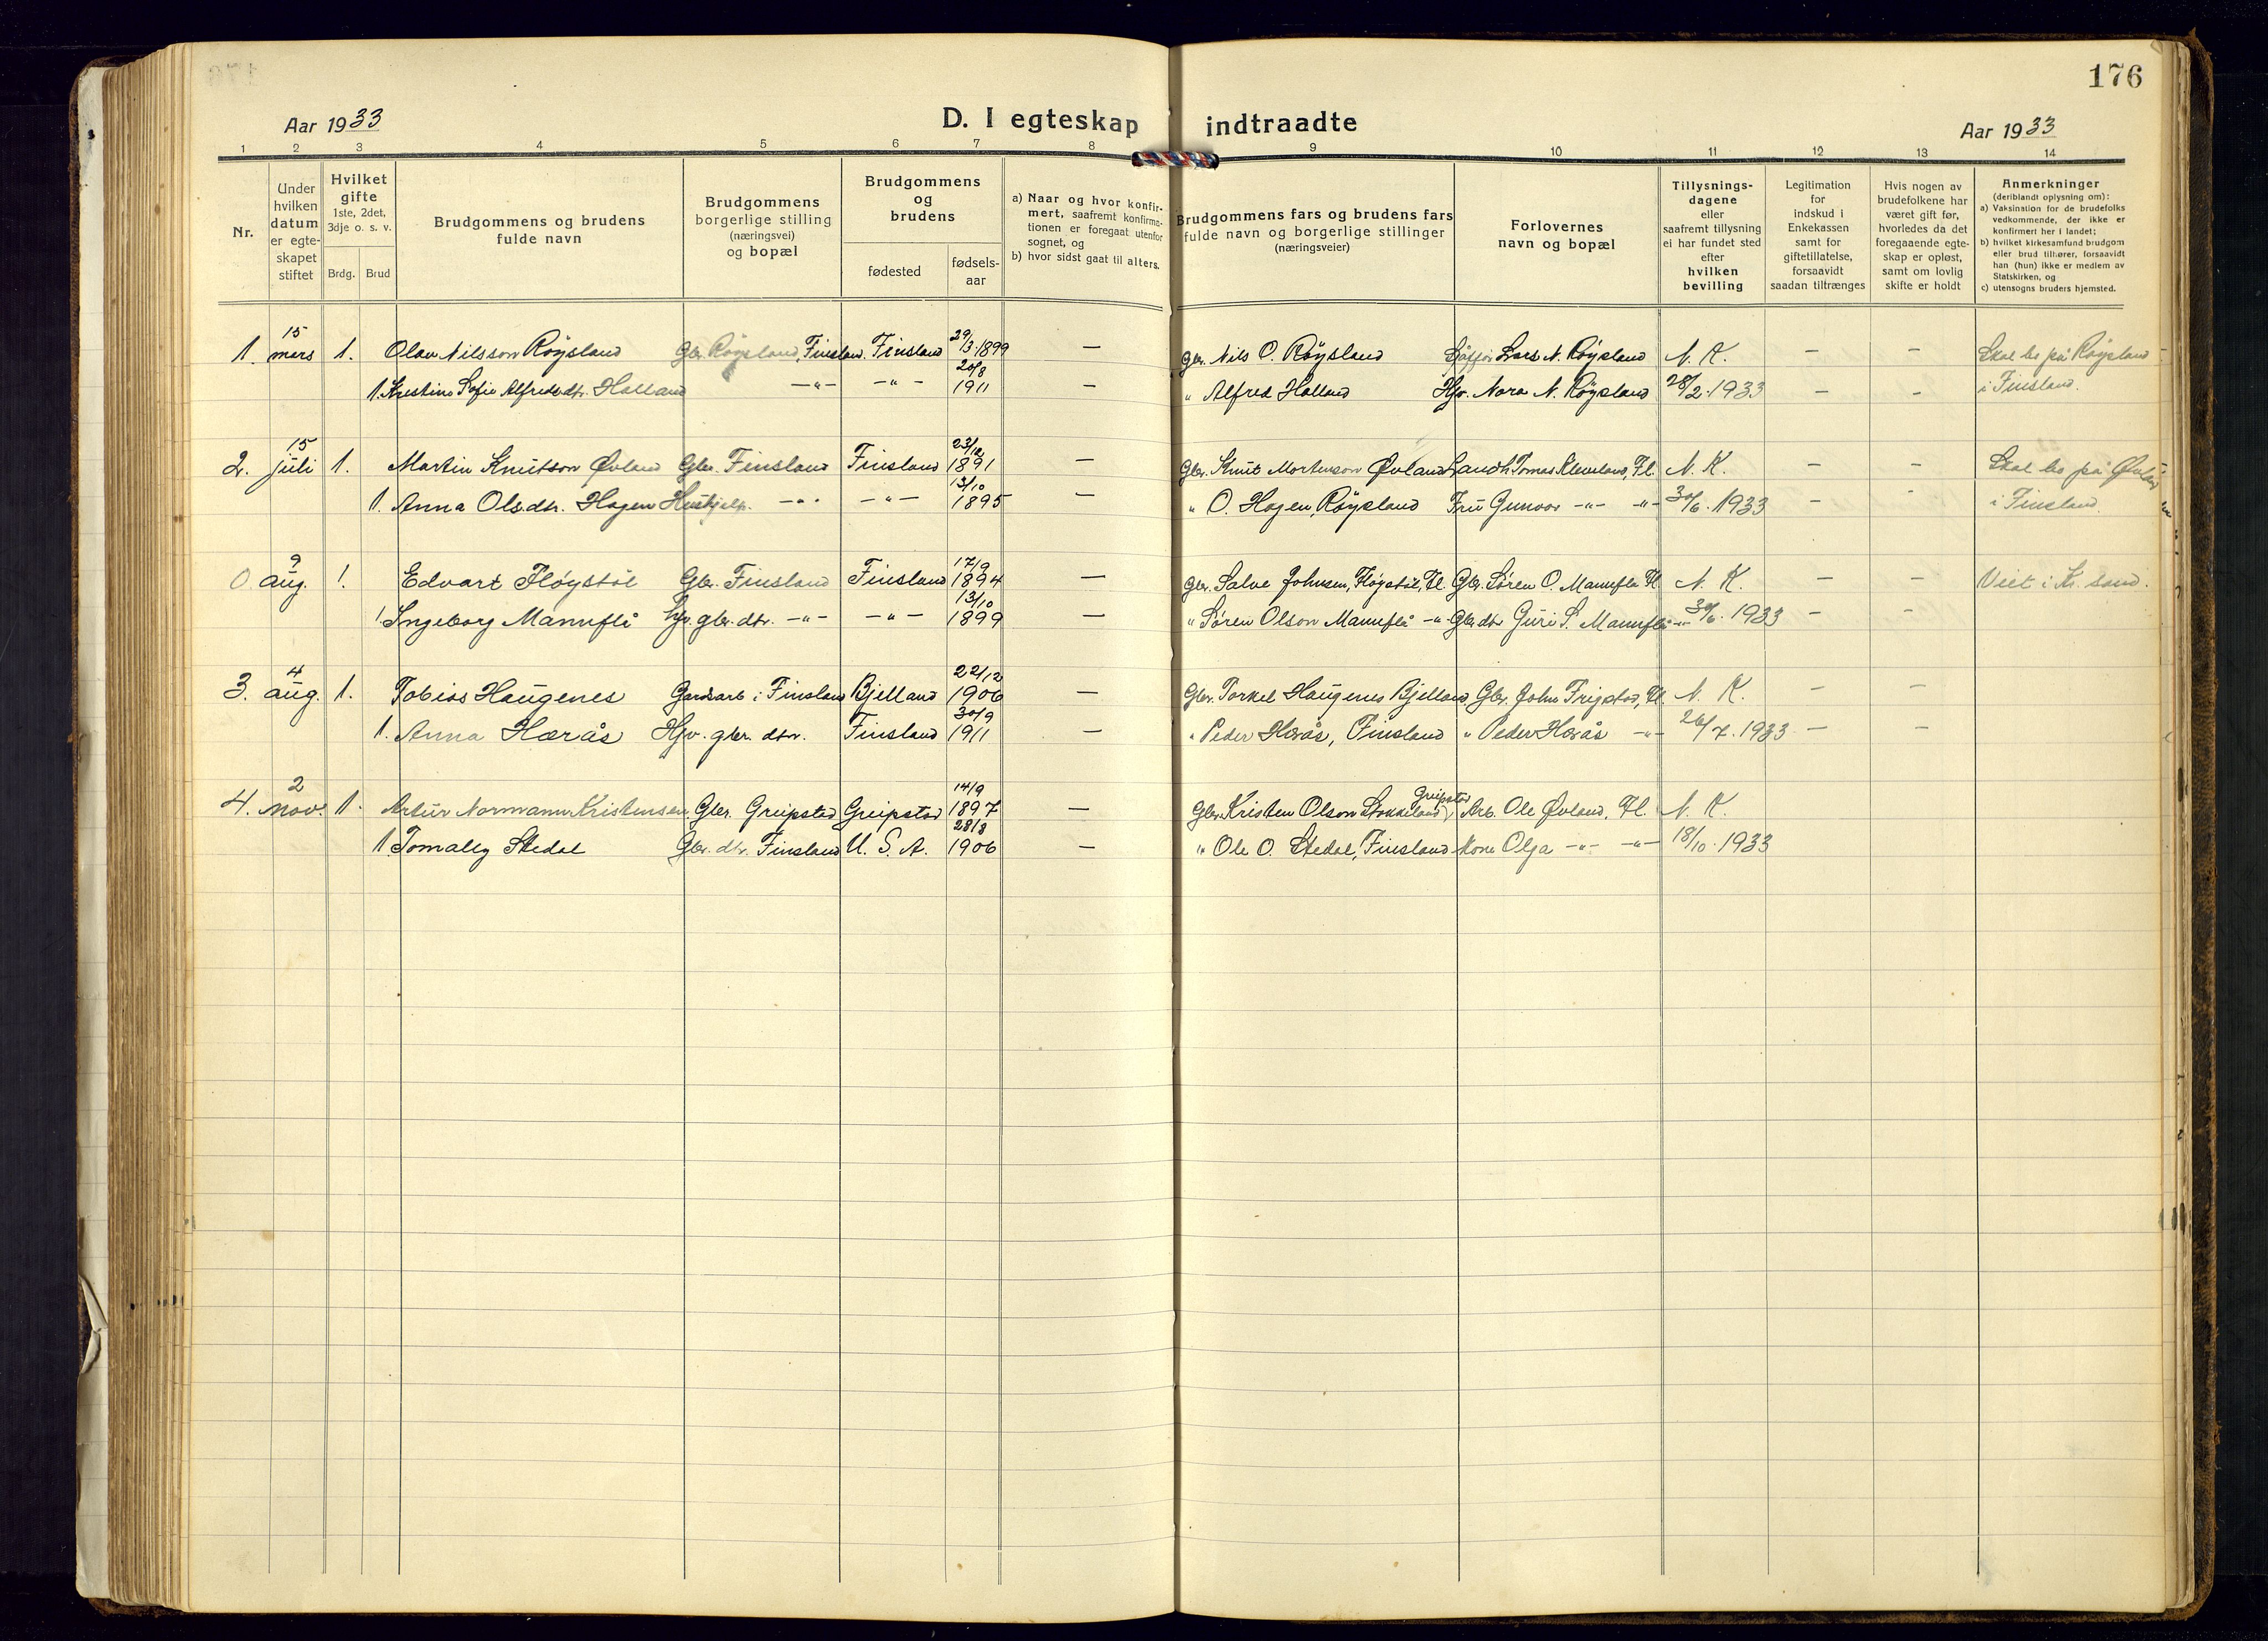 176
Aar 1933
D. I egteskap indtraadte
Aar 1933
1 2 3 4 5 6 7 8 9 10 11 12 13 14
Nr.
Under hvilken datum er egteskapet stiftet
Hvilket gifte 1ste, 2det, 3dje o. s. v.
Brdg. Brud
Brudgommens og brudens fulde navn
Brudgommens borgerlige stilling (næringsvei) og bopæl
Brudgommens og brudens
fødested
fødsels-aar
a) Naar og hvor konfirmert, saafremt konfirmationen er foregaat utenfor sognet, og
b) hvor sidst gaat til alters.
Brudgommens fars og brudens fars fulde navn og borgerlige stillinger (næringsveier)
Forlovernes navn og bopæl
Tillysningsdagene eller saafremt tillysning ei har fundet sted efter hvilken bevilling
Legitimation for indskud i Enkekassen samt for giftetillatelse, forsaavidt saadan tiltrænges
Hvis nogen av brudefolkene har været gift før, hvorledes da det foregaaende egteskap er opløst, samt om lovlig skifte er holdt
Anmerkninger (deriblandt oplysning om):
a) Vaksination for de brudefolks vedkommende, der ikke er konfirmert her i landet;
b) hvilket kirkesamfund brudgom eller brud tilhører, forsaavidt han (hun) ikke er medlem av Statskirken, og
c) utensogns bruders hjemsted.
1. 15 mars 1. Olav Nilsson Røysland Gbr. Røysland, Finsland. Finsland 29/3.1899 — Gbr. Nils O. Røysland Sjåfør Lars N. Røysland N. K. — — Skal bo på Røysland
1. Kristine Sofie Alfredsdtr. Holland —"— —"— 20/8 1911 — " Alfred Holland Hjv. Nora N. Røysland 28/2.1933 — — i Finsland.
2. 15 juli 1. Martin Knutson Øvland Gbr. Finsland Finsland 23/12 1891 — Gbr. Knut Mortenson Øvland Landh. Tomas Kleveland, Fl. N. K. — — Skal bo på Øvland
1. Anna Olsdtr. Hagen Hushjelp. —"— —"— 13/10 1895 — " O. Hagen, Røysland Fru Gunvor —"— —"— 30/6.1933 — — i Finsland.
0. 9 aug. 1. Edvart Fløystøl Gbr. Finsland Finsland 17/9 1894 — Gbr. Salve Johnsen, Fløystøl, Fl. Gbr. Søren O. Mannflå Fl. N. K. — — Viet i Kr. sand.
1. Ingeborg Mannflå Hjv. gbr. dtr. —"— —"— 13/10 1899 — " Søren Olson Mannflå —"— Gbr dtr Guri S. Mannflå —"— 30/6. 1933 — —
3. 4 aug. 1. Tobias Haugenes Gardsarb. i Finsland Bjelland 22/12 1906 — Gbr. Torkel Haugenes Bjelland, Gbr. John Frigstad, Fl. N. K. — —
1. Anna Hærås Hjv. gbr. dtr. Finsland 30/9 1911 — " Peder Hærås, Finsland " Peder Hærås —"— 26/7.1933 — —
4. 2 nov. 1. Artur Normann Kristensen Gbr. Greipstad Greipstad 14/9 1897 — Gbr. Kristen Olson Stokkeland, Greipstad Arb. Ole Øvland, Fl. N. K.
1. Tomally Stedal Gbr. dtr. Finsland U. S. A. 28/8 1906 — " Ole O. Stedal, Finsland Kone Olga —"— —"— 18/10.1933